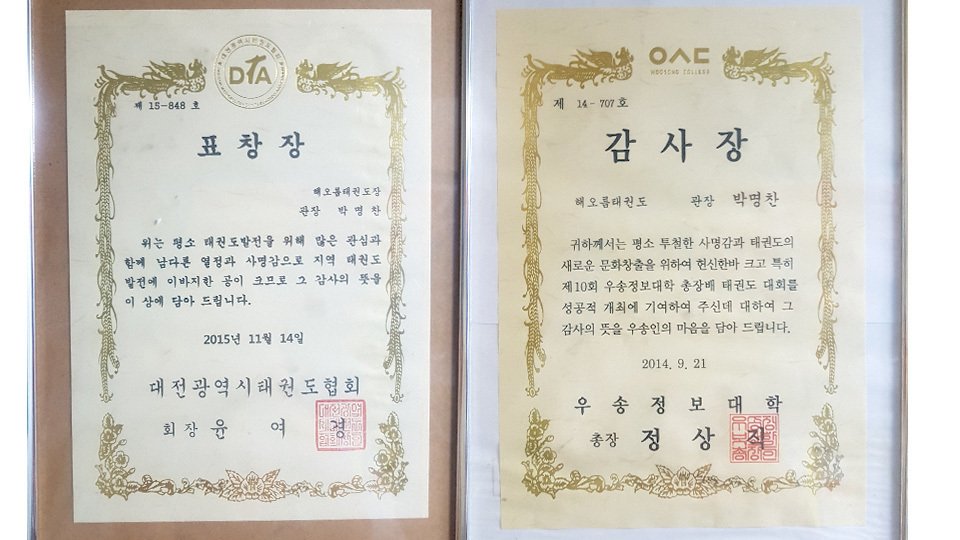 DTA
제 15-848 호
표창장
해오름태권도장
관장 박명찬
위는 평소 태권도발전을 위해 많은 관심과
함께 남다른 열정과 사명감으로 지역 태권도
발전에 이바지한 공이 크므로 그 감사의 뜻을
이 상에 담아 드립니다.
2015년 11월 14일
대전광역시태권도협회
회장 윤 여 경
WOOSONG COLLEGE
제 14-707호
감사장
해오름태권도 관장 박명찬
귀하께서는 평소 투철한 사명감과 태권도의
새로운 문화창출을 위하여 헌신한바 크고 특히
제10회 우송정보대학 총장배 태권도 대회를
성공적 개최에 기여하여 주신데 대하여 그
감사의 뜻을 우송인의 마음을 담아 드립니다.
2014. 9. 21
우송정보대학
총장 정 상 직